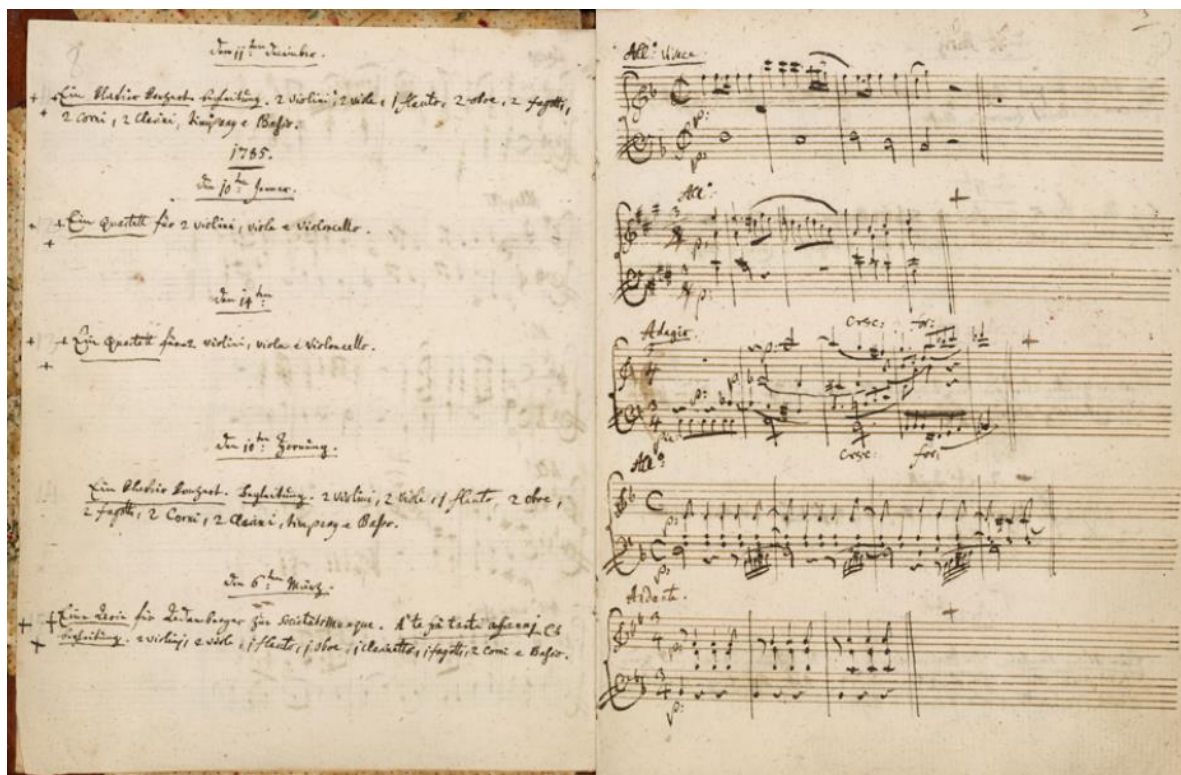 8
Den 11:ten December.
Ein Klavier konzert. begleitung. 2 violini, 2 viole, 1 flauto, 2 oboe, 2 fagotti,
2 Corni, 2 Clarini, timpany e Baßo.
1785.
den 10:ten Jenner.
Ein Quartett für 2 violini, viola e violoncello.
den 14:ten
Ein Quartett für 2 violini, viola e violoncello.
den 10:ten Hornung.
Ein Klavier konzert. begleitung. 2 violini, 2 viole, 1 flauto, 2 oboe,
2 fagotti, 2 Corni, 2 Clarini, timpany e Baßo.
den 6:ten März.
Eine Aria für Adamberger zur Societätsmusique. A te frà tanti affanni Etc
begleitung. 2 violini, 2 viole, 1 flauto, 1 oboe, 1 clarinetto, 1 fagotto, 2 Corni e Baßo.
All:o vivace.
p:
p:
All:o
p:
p:
Adagio.
Cresc: for:
p:
p:
p:
Cresc: for:
All:o
p:
p:
Andante.
p:
p: